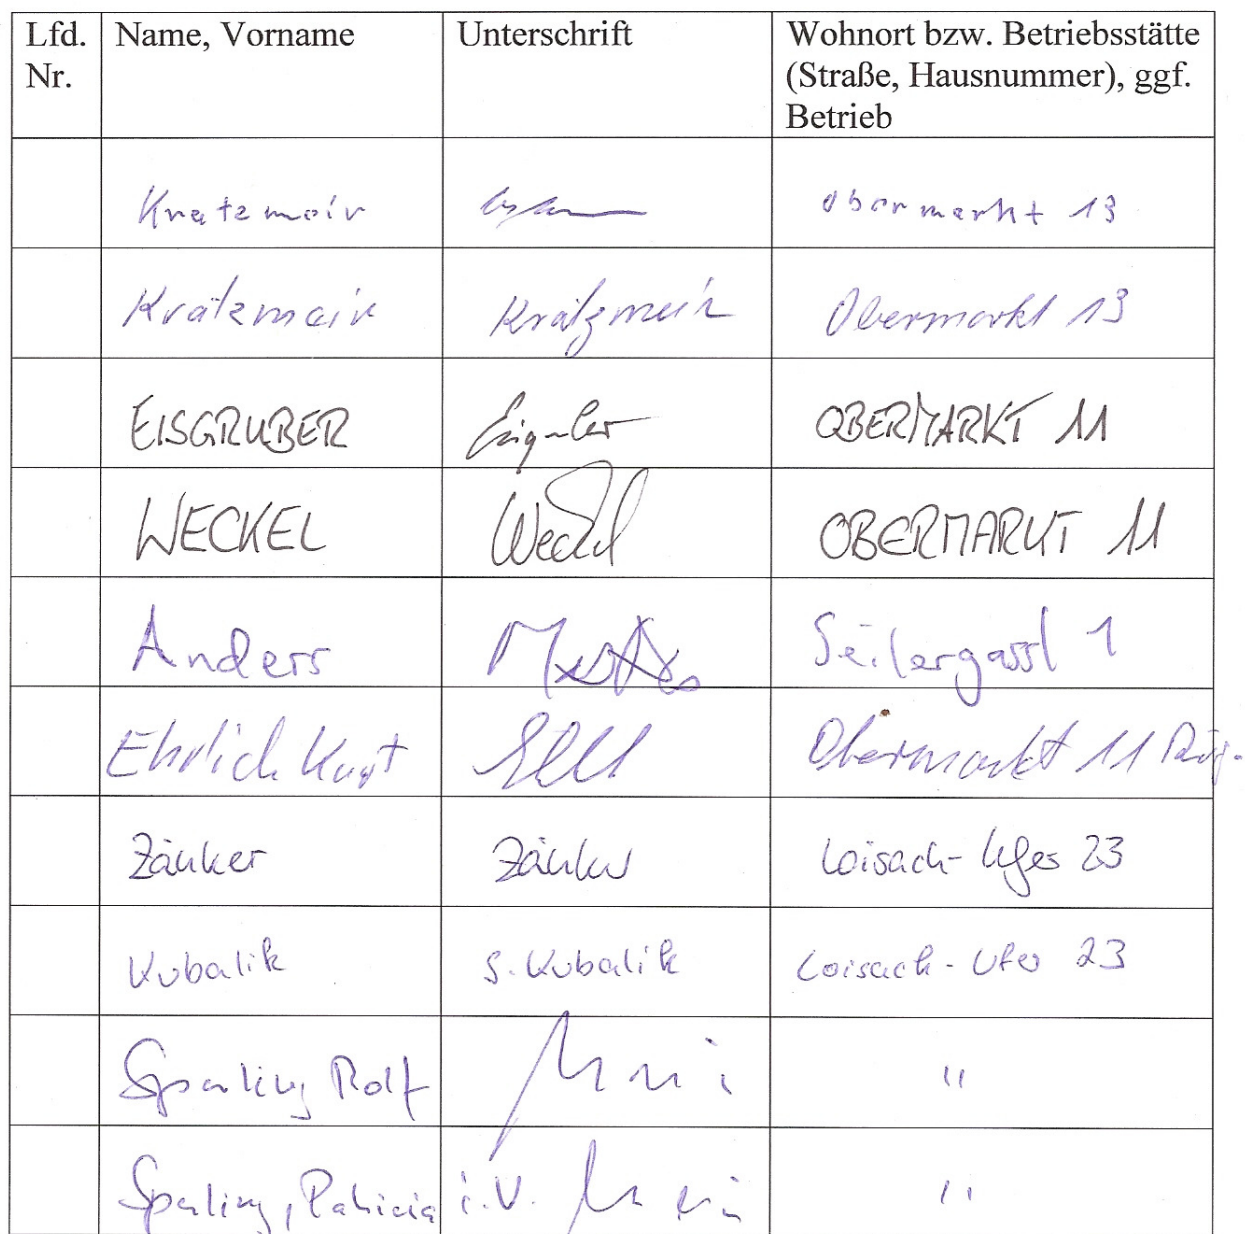 Lfd. Nr.
Name, Vorname
Unterschrift
Wohnort bzw. Betriebsstätte
(Straße, Hausnummer), ggf.
Betrieb
Kratzmair Obermarkt 13
Krätzmair Krätzmair Obermarkt 13
EISGRUBER OBERMARKT 11
WECKEL Weckel OBERMARKT 11
Anders Seilergassl 1
Ehrlich Kurt Obermarkt 11
Zänker Zänker Loisach-Ufer 23
Kubalik S. Kubalik Loisach-Ufer 23
Sparling Rolf "
Sparling, Patricia i.V. "